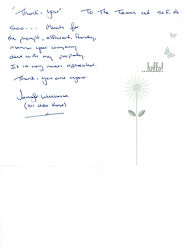 "Thank you" To The Team at S.E.A
sooo... Much for
the prompt, efficient, friendly,
manner your company
dealt with my property.
It is very much appreciated.
Thank you once again.
Jennifer
...hello!